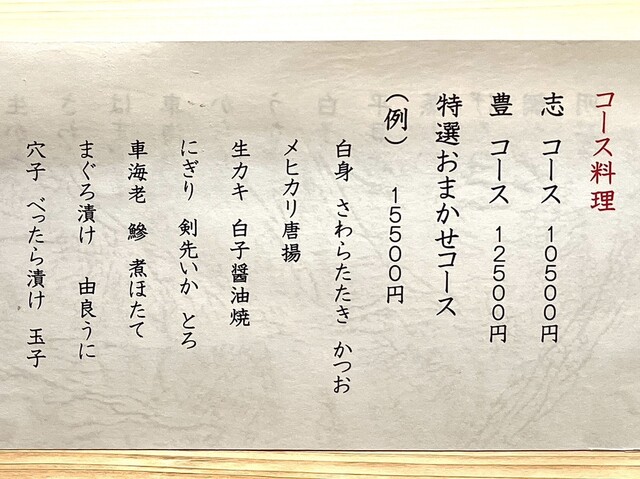 コース料理
志 コース 10500円
豊 コース 12500円
特選おまかせコース
(例) 15500円
白身 さわらたたき かつお
メヒカリ唐揚
生カキ 白子醤油焼
にぎり 剣先いか とろ
車海老 鰺 煮ほたて
まぐろ漬け 由良うに
穴子 べったら漬け 玉子